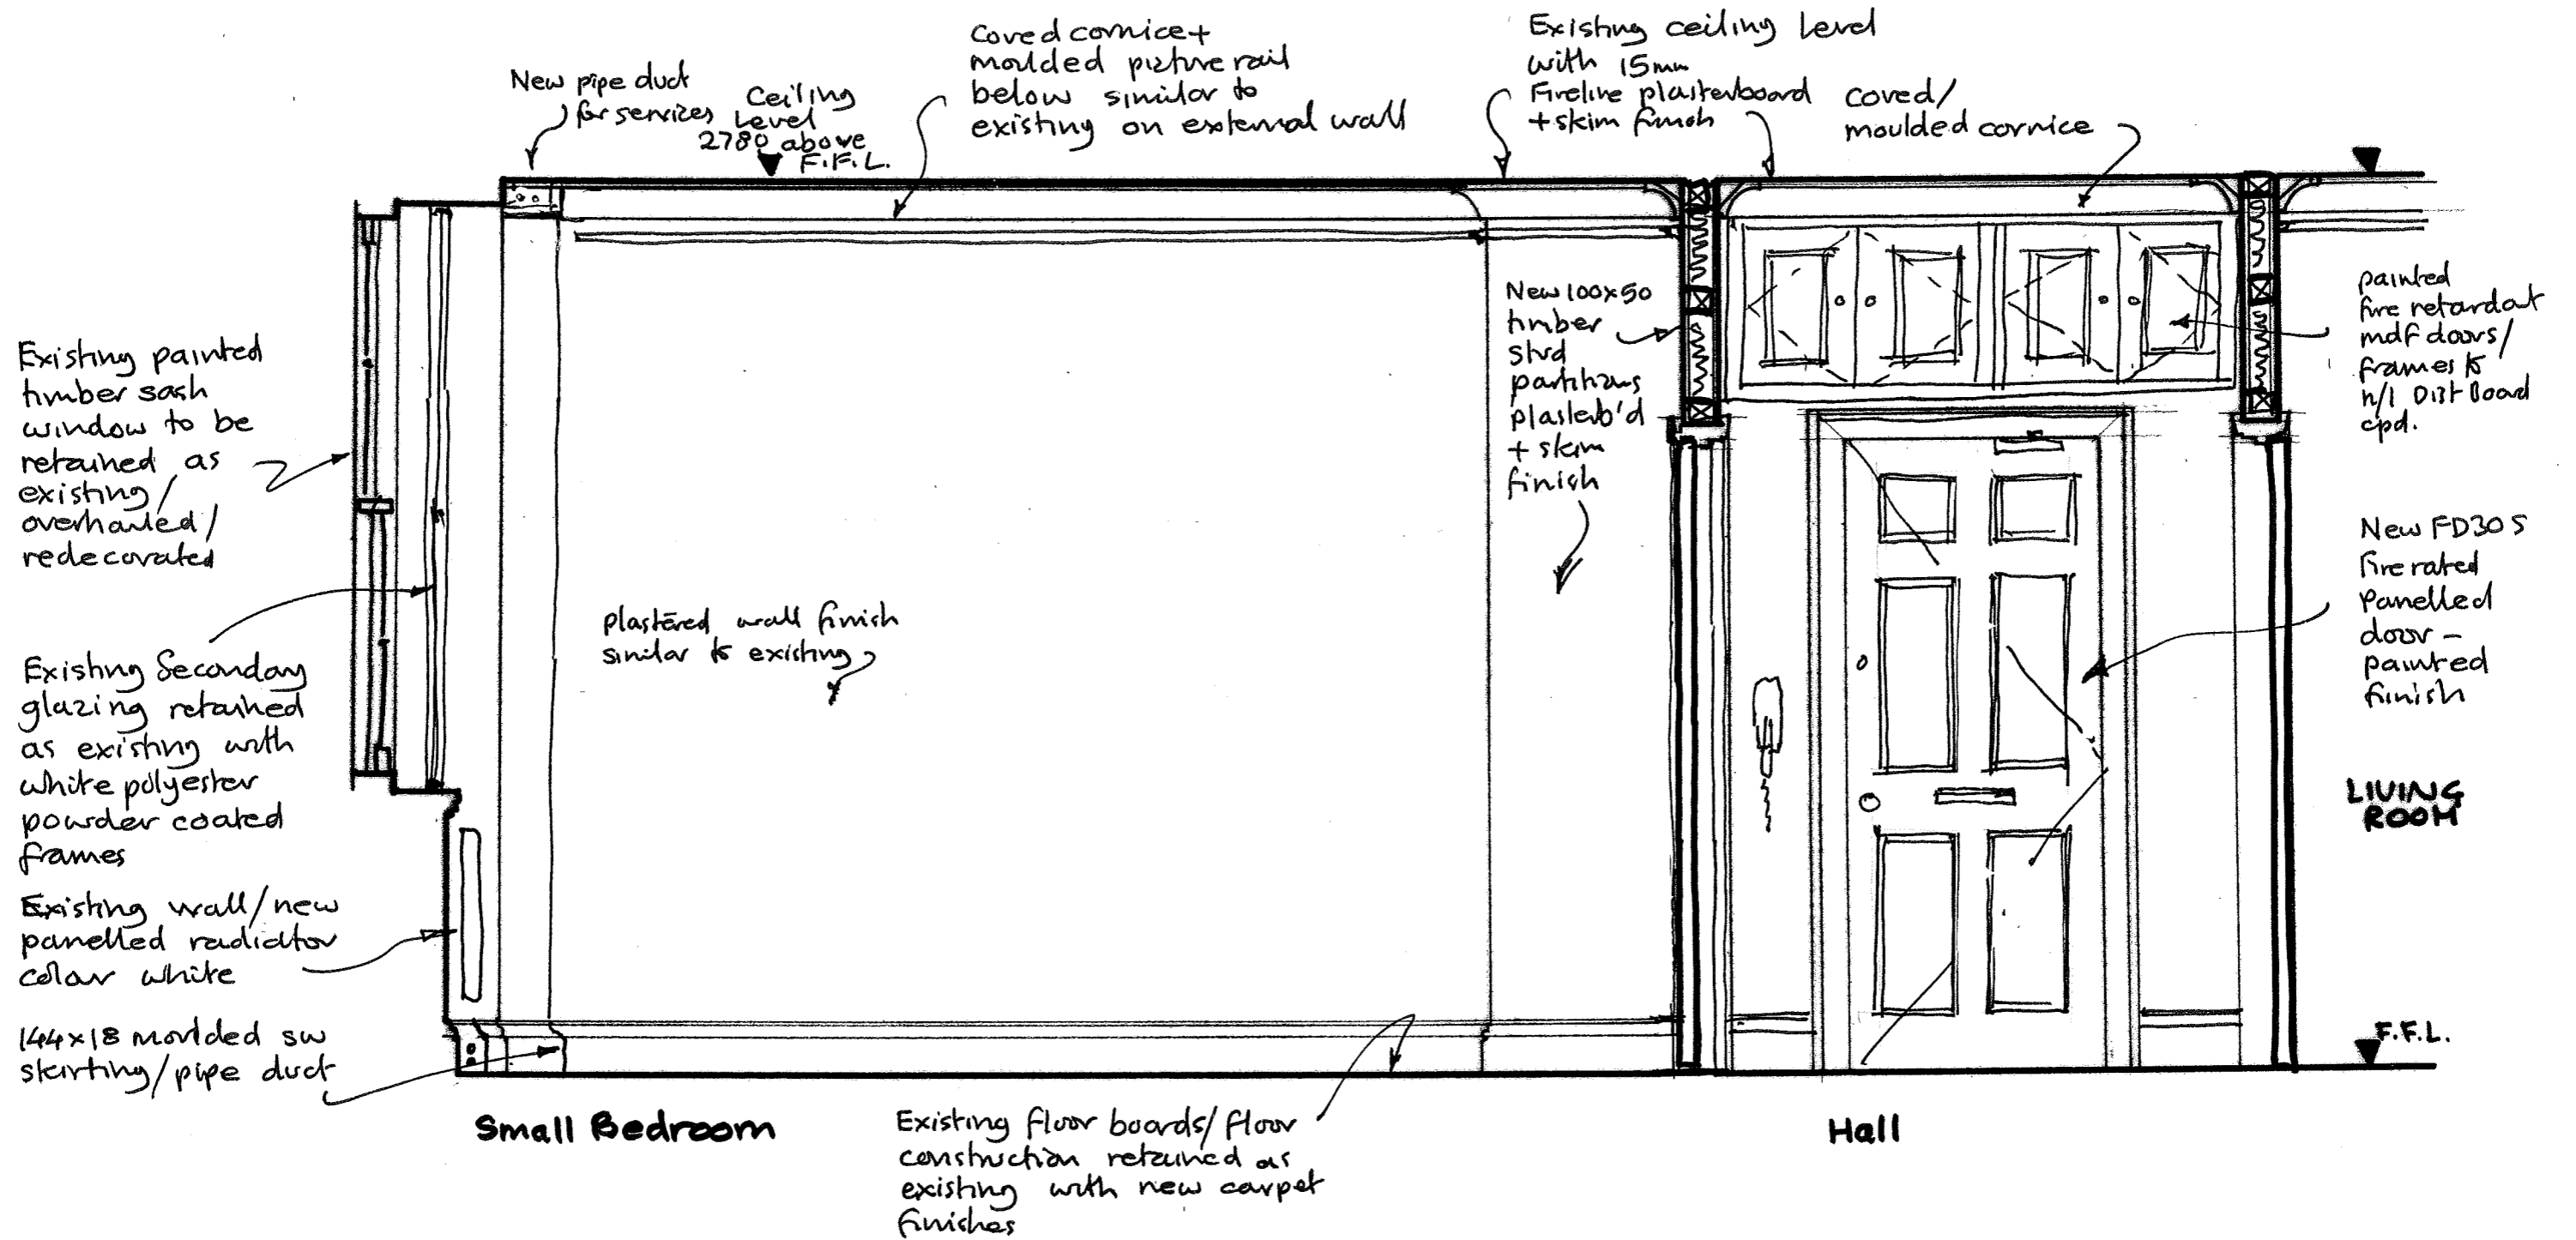 New pipe duct
for services
Ceiling
Level
2780 above
F.F.L.
Coved cornice +
moulded picture rail
below similar to
existing on external wall
Existing ceiling level
with 15mm
Fireline plasterboard
+ skim finish
coved/
moulded cornice
Existing painted
timber sash
window to be
retained as
existing/
overhauled/
redecorated
Existing Secondary
glazing retained
as existing with
white polyester
powder coated
frames
Existing wall/new
panelled radiator
colour white
144x18 moulded sw
skirting/pipe duct
plastered wall finish
similar to existing
New 100x50
timber
stud
partitions
plasterb'd
+ skim
finish
painted
fire retardant
mdf doors/
frames to
h/l Dist Board
cpd.
New FD30 S
fire rated
panelled
door –
painted
finish
LIVING
ROOM
F.F.L.
Small Bedroom
Existing floor boards/floor
construction retained as
existing with new carpet
finishes
Hall